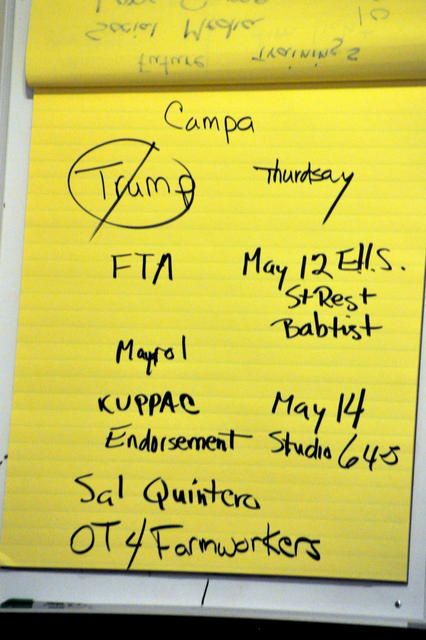 Future Training
Social Media
10
Campa
Trump Thurdsay
FTA May 12 E.H.S.
St Rest
Babtist
Mayrol
KUPPAC May 14
Endorsement Studio 645
Sal Quintero
OT 4 Farmworkers